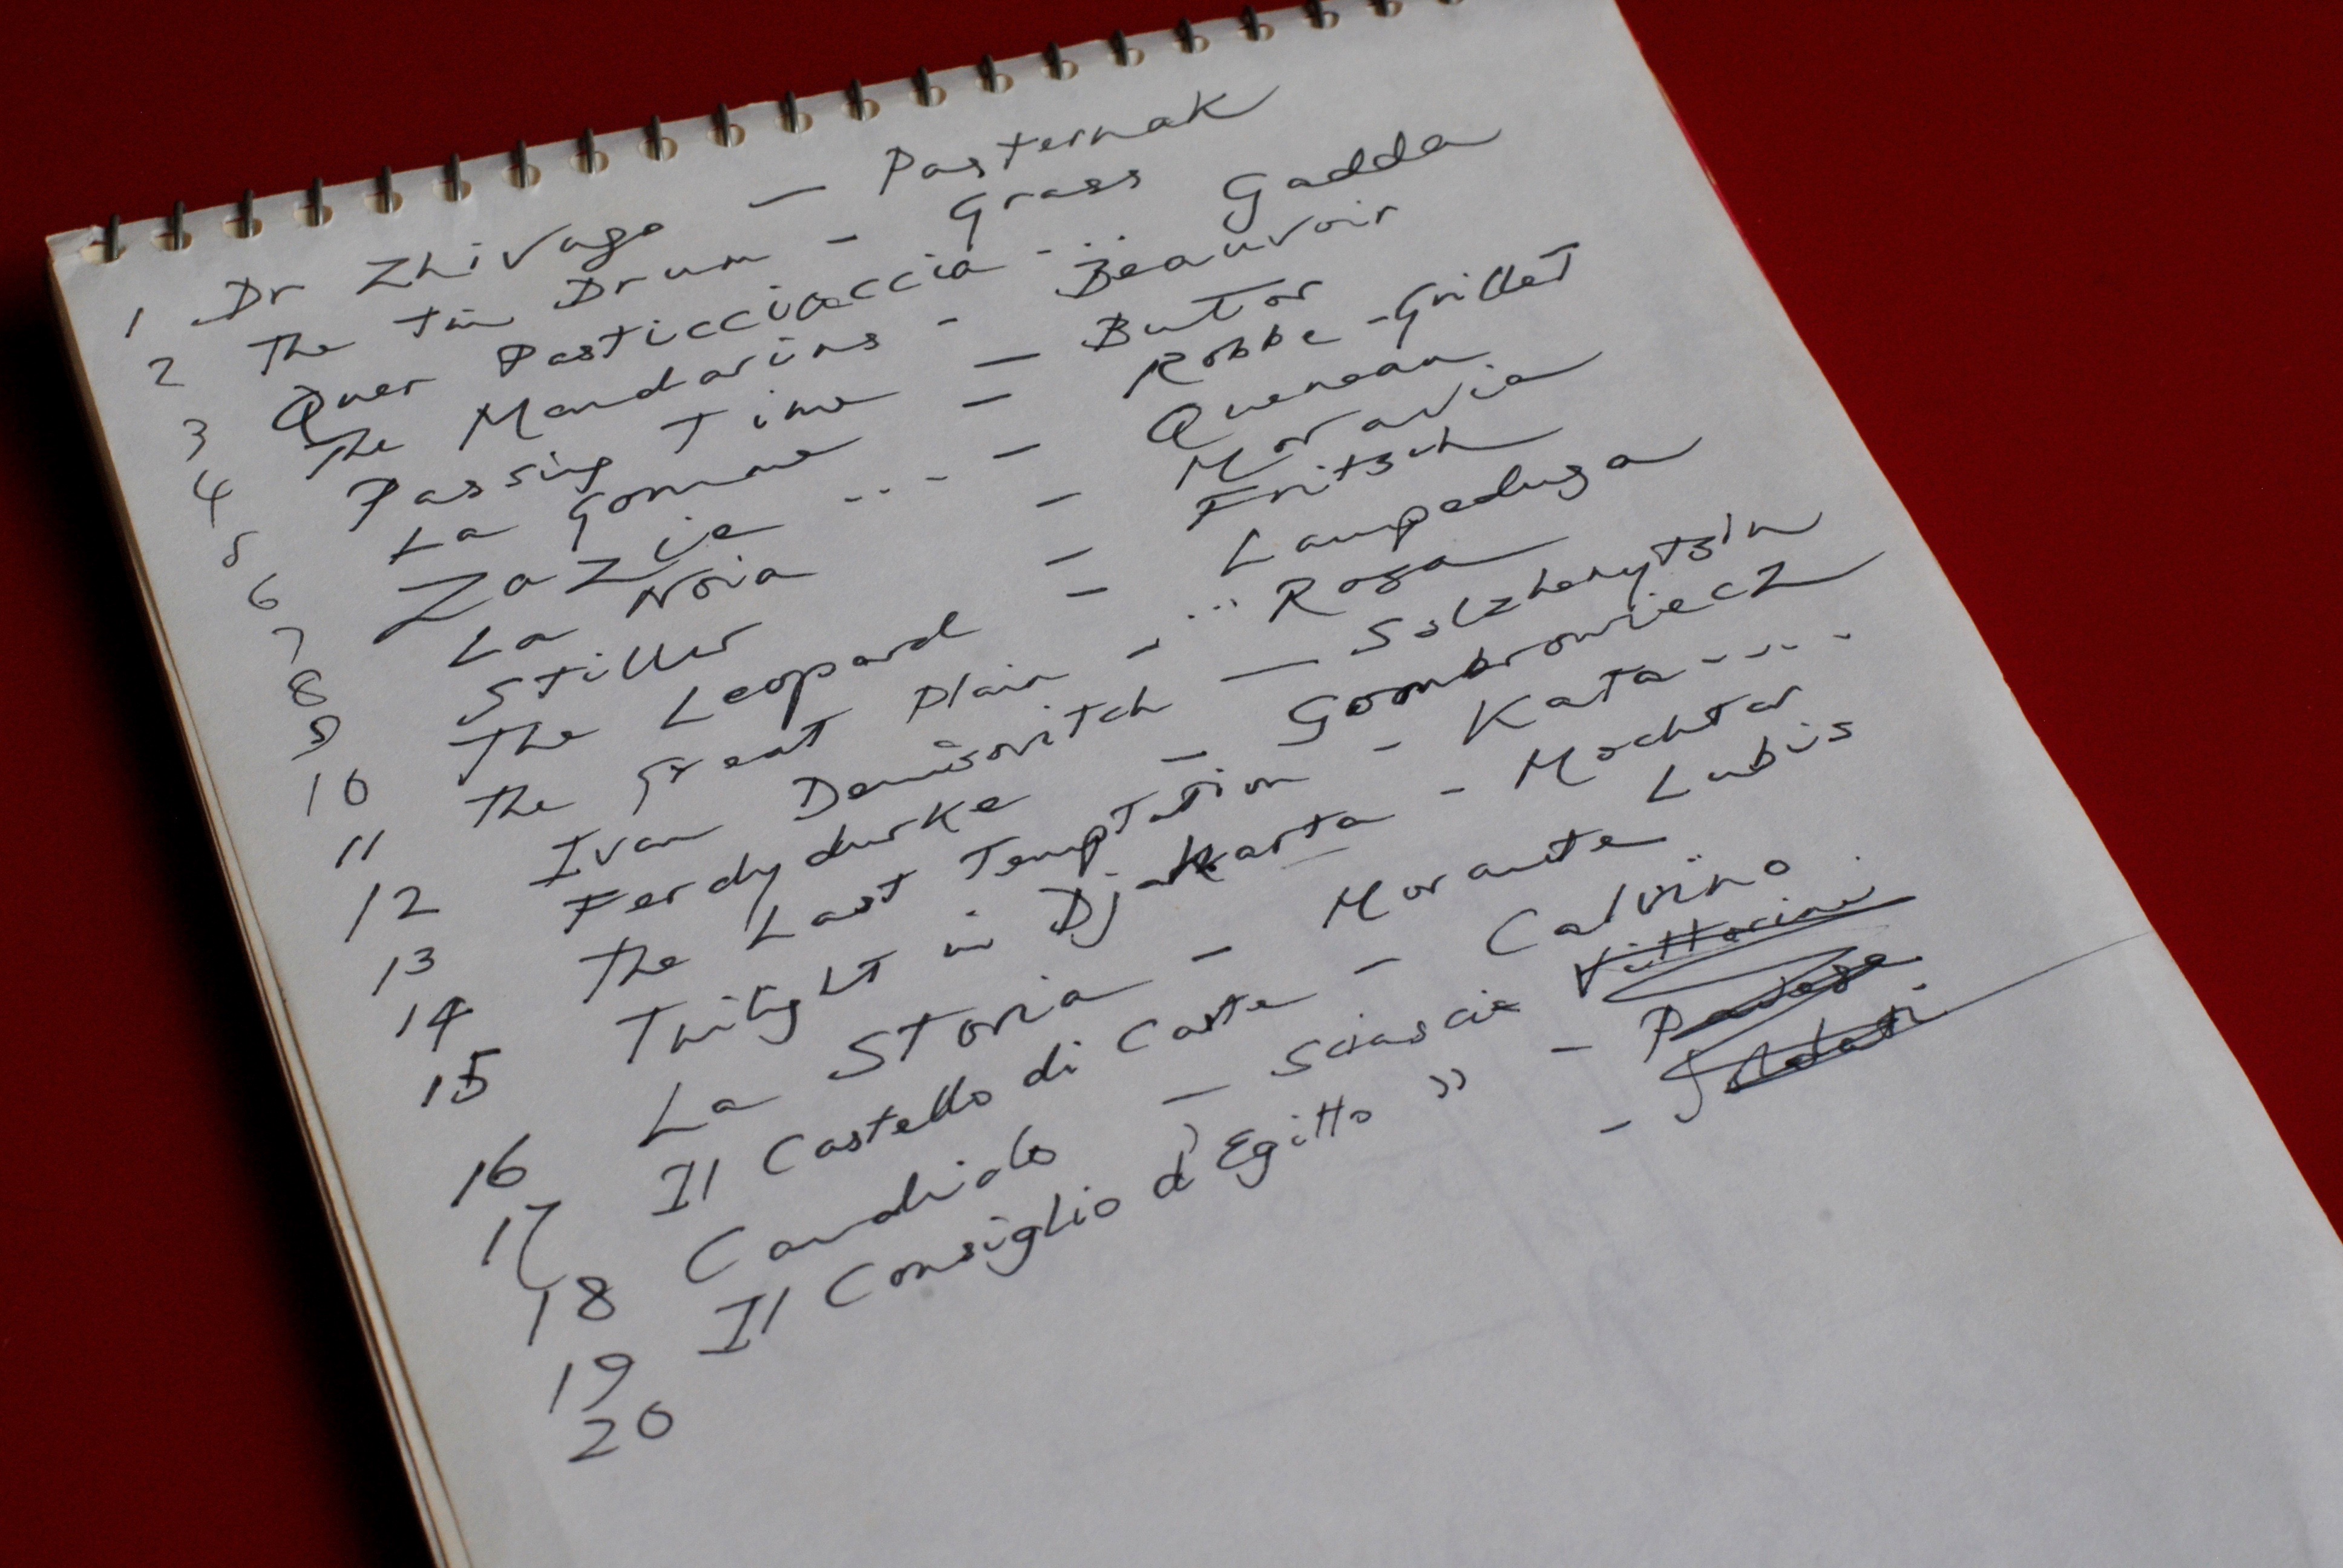 1 Dr Zhivago — Pasternak
2 The Tin Drum - Grass
3 Quer Pasticciaccia - ... Gadda
4 The Mandarins - Beauvoir
5 Passing Time — Butor
6 La Gomme — Robbe-Grillet
7 Zazie ... — Queneau
8 La Noia — Moravia
9 Stiller — Fritsch
10 The Leopard — Lampedusa
11 The Great Plain - ... Rosa
12 Ivan Denisovitch — Solzhenytsin
13 Ferdydurke — Gombrowiecz
14 The Last Temptation - Kata----
15 Twilight in Djakarta - Mochtar Lubis
16 La Storia - Morante
17 Il Castello di Caste - Calvino
18 Candido — Sciascia Vittorini
19 Il Consiglio d'Egitto " - Pavese
20 - Soldati